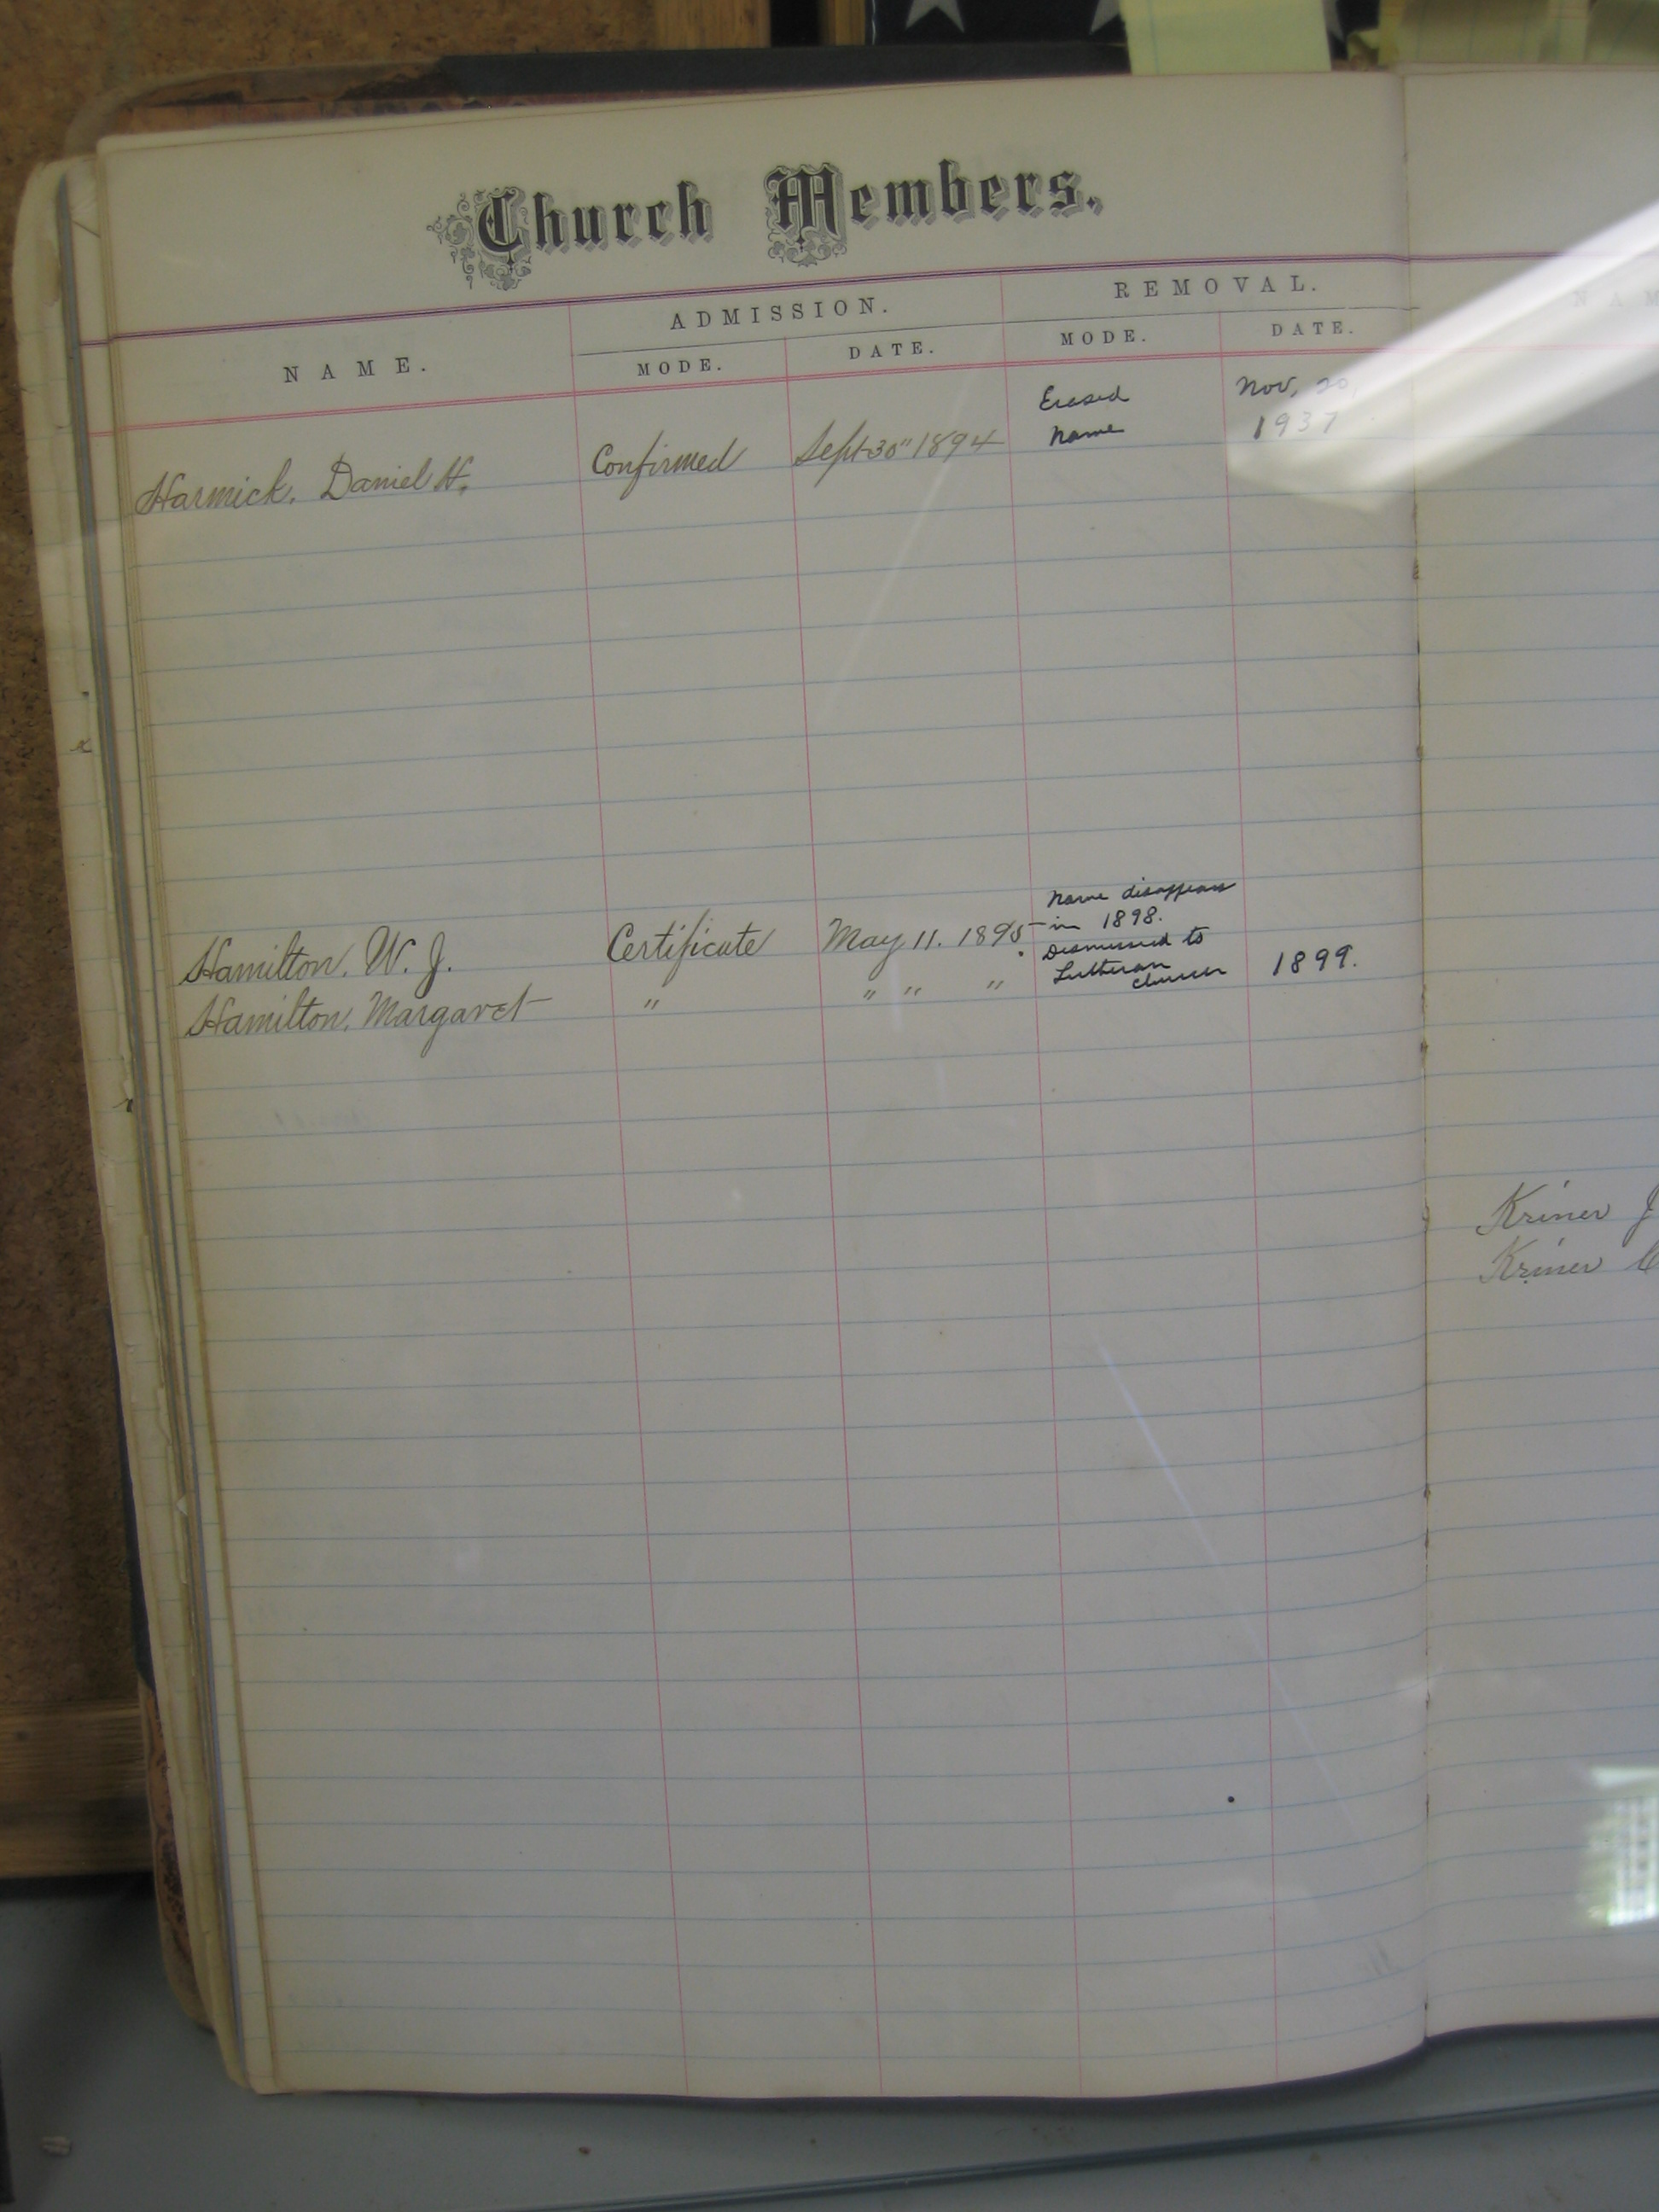 Church Members.
NAME.
ADMISSION.
REMOVAL.
MODE.
DATE.
MODE.
DATE.
NAM
Erased Nov, 20,
Name 1937
Harmick, Daniel H. Confirmed Sept 30" 1894
Name disappears
in 1898.
Hamilton, W. J. Certificate May 11. 1895
Dismissed to
Lutheran
church 1899.
Hamilton, Margaret " " " "
Kriner J
Kriner